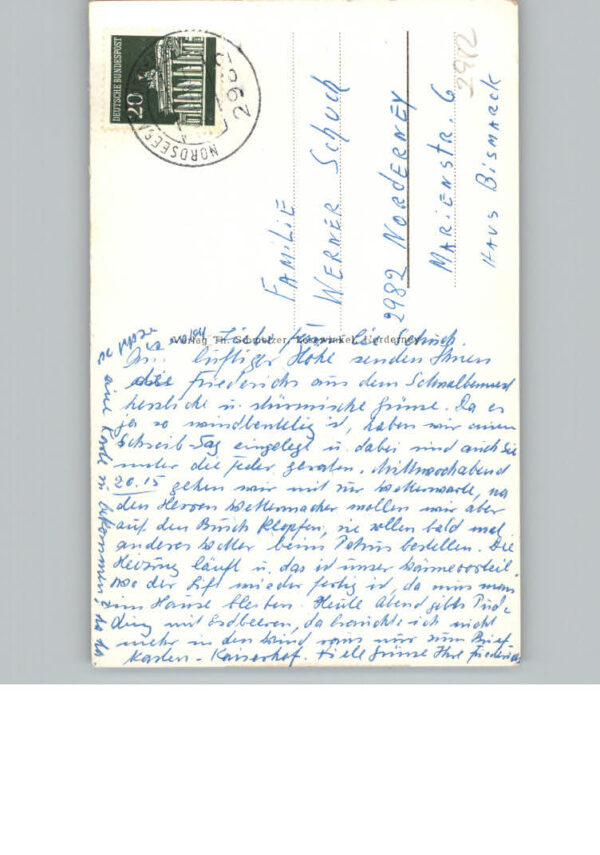 DEUTSCHE BUNDESPOST
20
NORDSEE
2982
2982
FAMiLiE
WERNER Schuch
2982 NORDERNEY
MARiENSTR. 6
HAUS BISMARCK
Verlag Th. Schmelzer, Norderney
Liebe Familie Schuch.
In luftiger Höhe senden Ihnen
die Friederichs aus dem Schwalbennest
herzliche u. stürmische Grüsse. Da es
ja so windbeutelig ist, haben wir einen
Schreib-Tag eingelegt u. dabei sind auch Sie
unter die Feder geraten. Mittwochabend
20.15 gehen wir mit zur Wetterwarte, na
den Herren Wettermacher wollen wir aber
auf den Busch klopfen, sie sollen bald mal
anderes Wetter beim Petrus bestellen. Die
Heizung läuft u. das ist unser Wärmevorteil.
wo der Lift wieder fertig ist, da muss man
im Hause bleiben. Heute Abend gibts Pud-
ding mit Erdbeeren, da brauche ich nicht
mehr in den Wind raus nur zum Brief-
kasten - Kaiserhof. Viele Grüsse Ihre Friederichs
eine Karte zu bekommen, ha ha